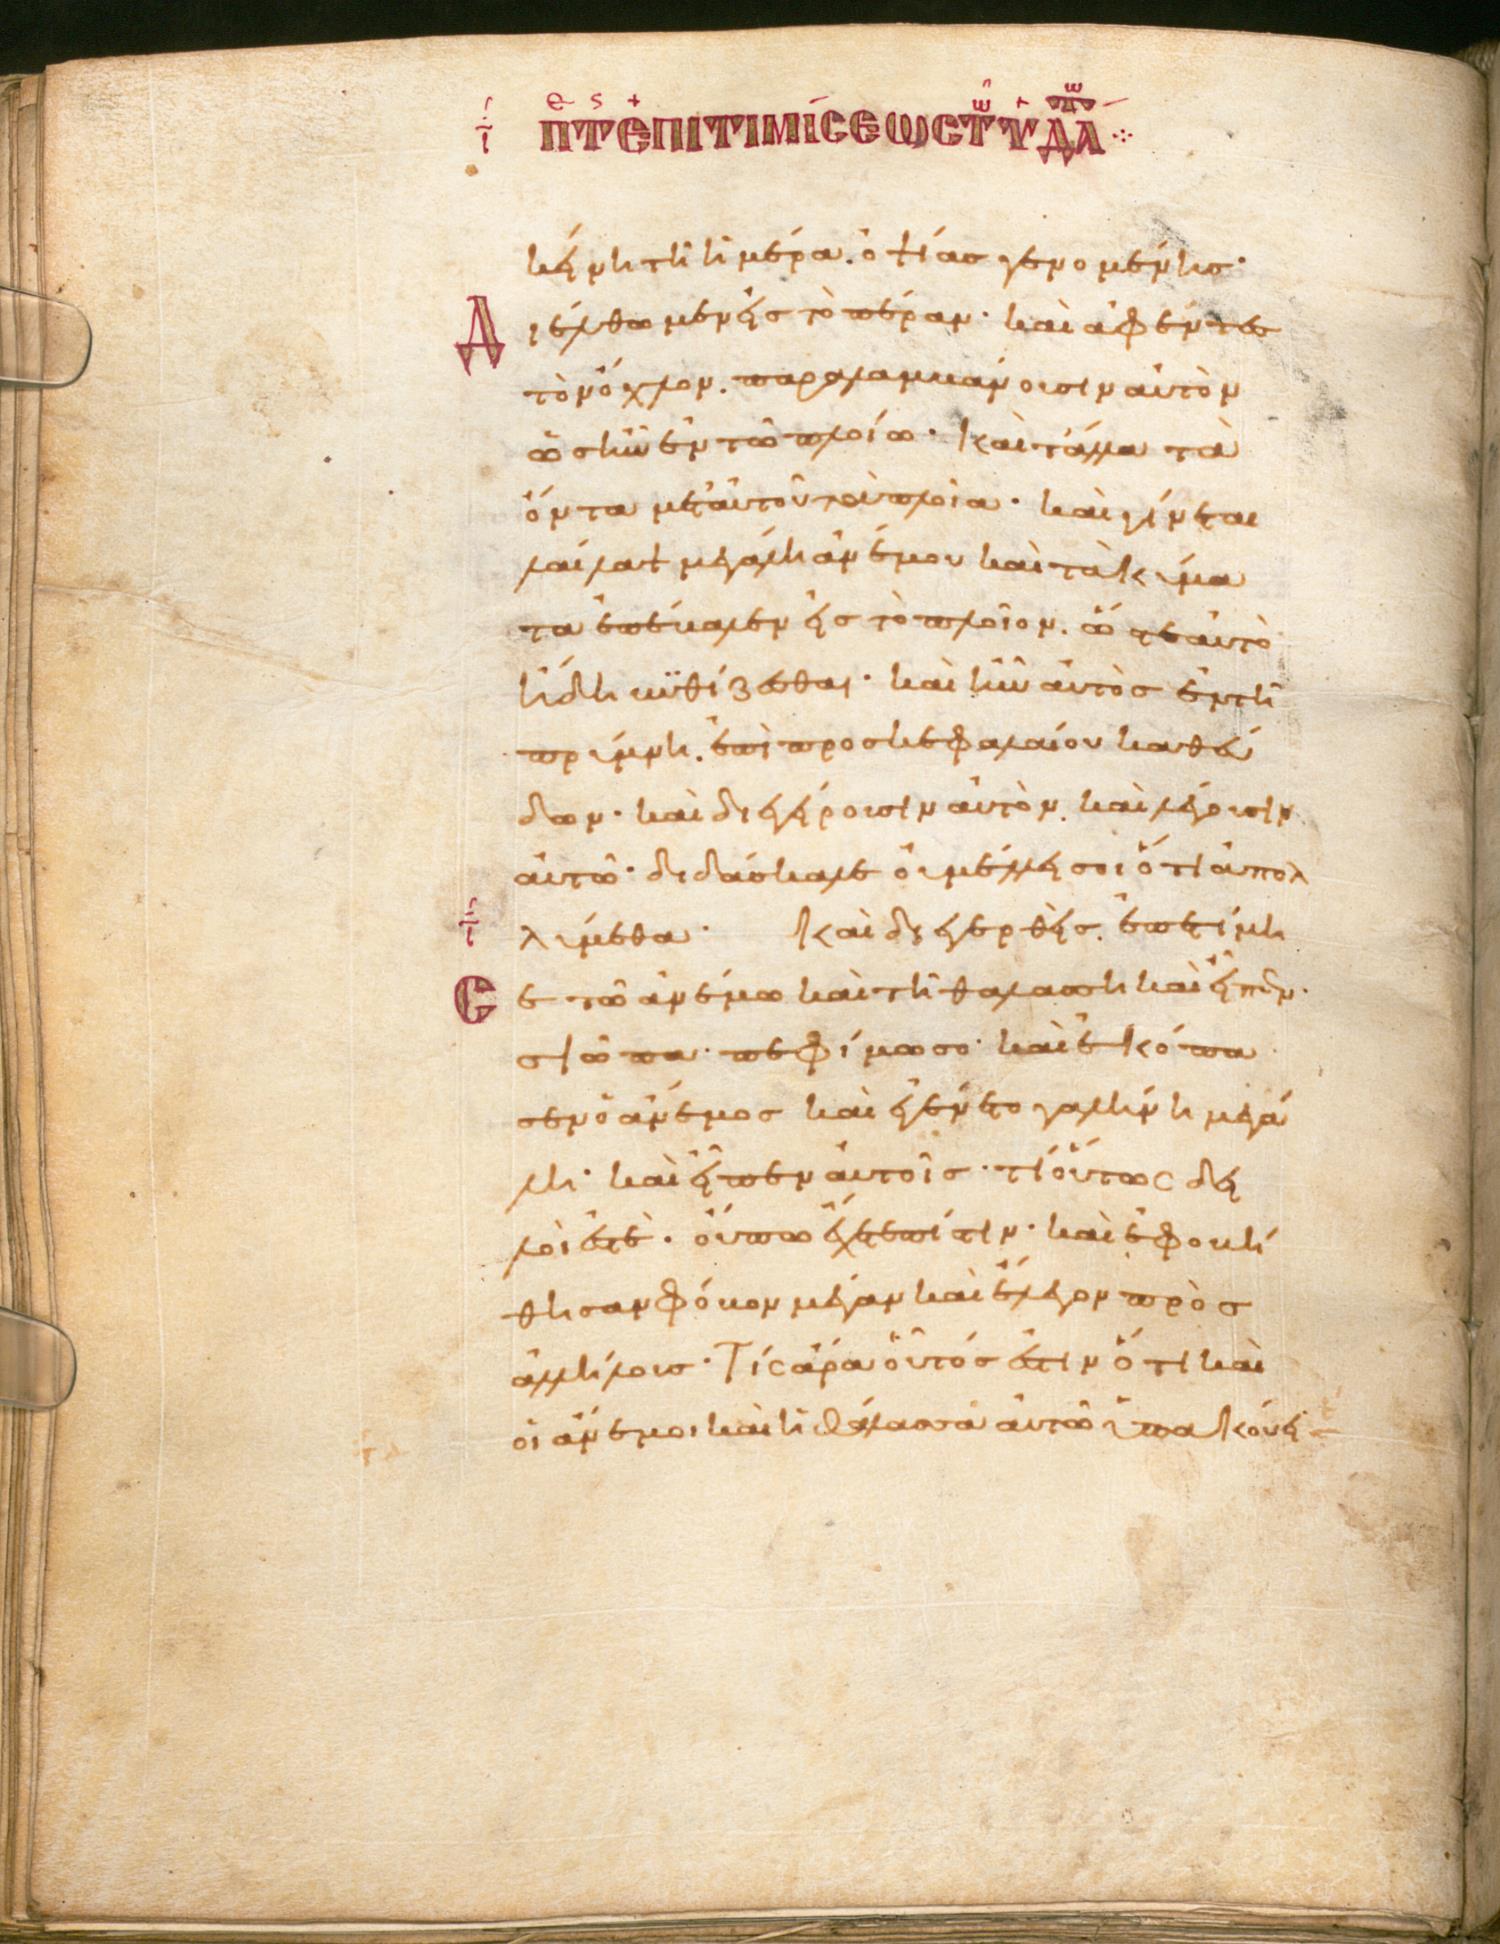 ι πτεπιτιμίσεωστῶυδλ
κείνη τῆ ἡμέρα. ὀψίας γενομένης·
Διέλθωμεν εἰς τὸ πέραν· καὶ ἀφέντες
τὸν ὄχλον. παραλαμβάνουσιν αὐτὸν
ὡς ἦν ἐν τῶ πλοίω· Καὶ τἄλλα τὰ
ὄντα μετ' αὐτοῦ πλοῖα· καὶ γίνεται
λαίλαψ μεγάλη ἀνέμου καὶ τὰ κύμα
τα ἐπέβαλεν εἰς τὸ πλοῖον. ὥστε αὐτὸ
ἤδη βυθίζεσθαι· καὶ ἦν αὐτὸς ἐν τῆ
πρύμνη. ἐπὶ προσκεφαλαίου καθεύ
δων· καὶ διεγείρουσιν αὐτὸν. καὶ λέγουσιν
αὐτῶ· διδάσκαλε οὐ μέλλει σοι ὅτι ἀπολ
λύμεθα· Καὶ διεγερθεὶς. ἐπετίμη
Ε σε τῶ ἀνέμω καὶ τῆ θαλασση καὶ εἶπεν·
σιώπα· πεφίμωσο· καὶ ἐκόπα
σεν ὁ ἄνεμος καὶ ἐγένετο γαλήνη μεγά
λη· καὶ εἶπεν αὐτοῖς· τί οὕτως δει
λοί ἐστὲ· οὔπω ἔχετε πίστιν· καὶ ἐφοβή
θησαν φόβον μέγαν καὶ ἔλεγον πρὸς
ἀλλήλους· Τίς ἄρα οὗτός ἐστιν ὅτι καὶ
οἱ ἄνεμοι καὶ ἡ θάλασσα αὐτῶ ὑπακούει